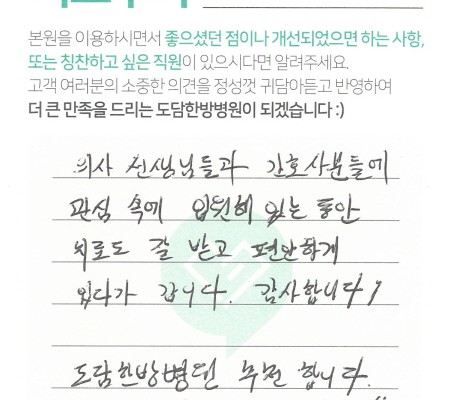 본원을 이용하시면서 좋으셨던 점이나 개선되었으면 하는 사항,
또는 칭찬하고 싶은 직원이 있으시다면 알려주세요.
고객 여러분의 소중한 의견을 정성껏 귀담아듣고 반영하여
더 큰 만족을 드리는 도담한방병원이 되겠습니다 :)
의사 선생님들과 간호사분들에
관심 속에 입원해 있는 동안
치료도 잘 받고 편안하게
있다가 갑니다. 감사합니다!
도담한방병원 추천 합니다.